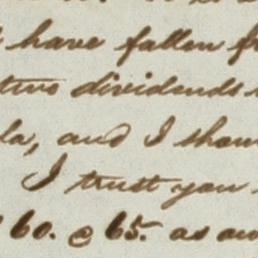 have fallen
two dividends
and I
I trust you
60. @ 65. as